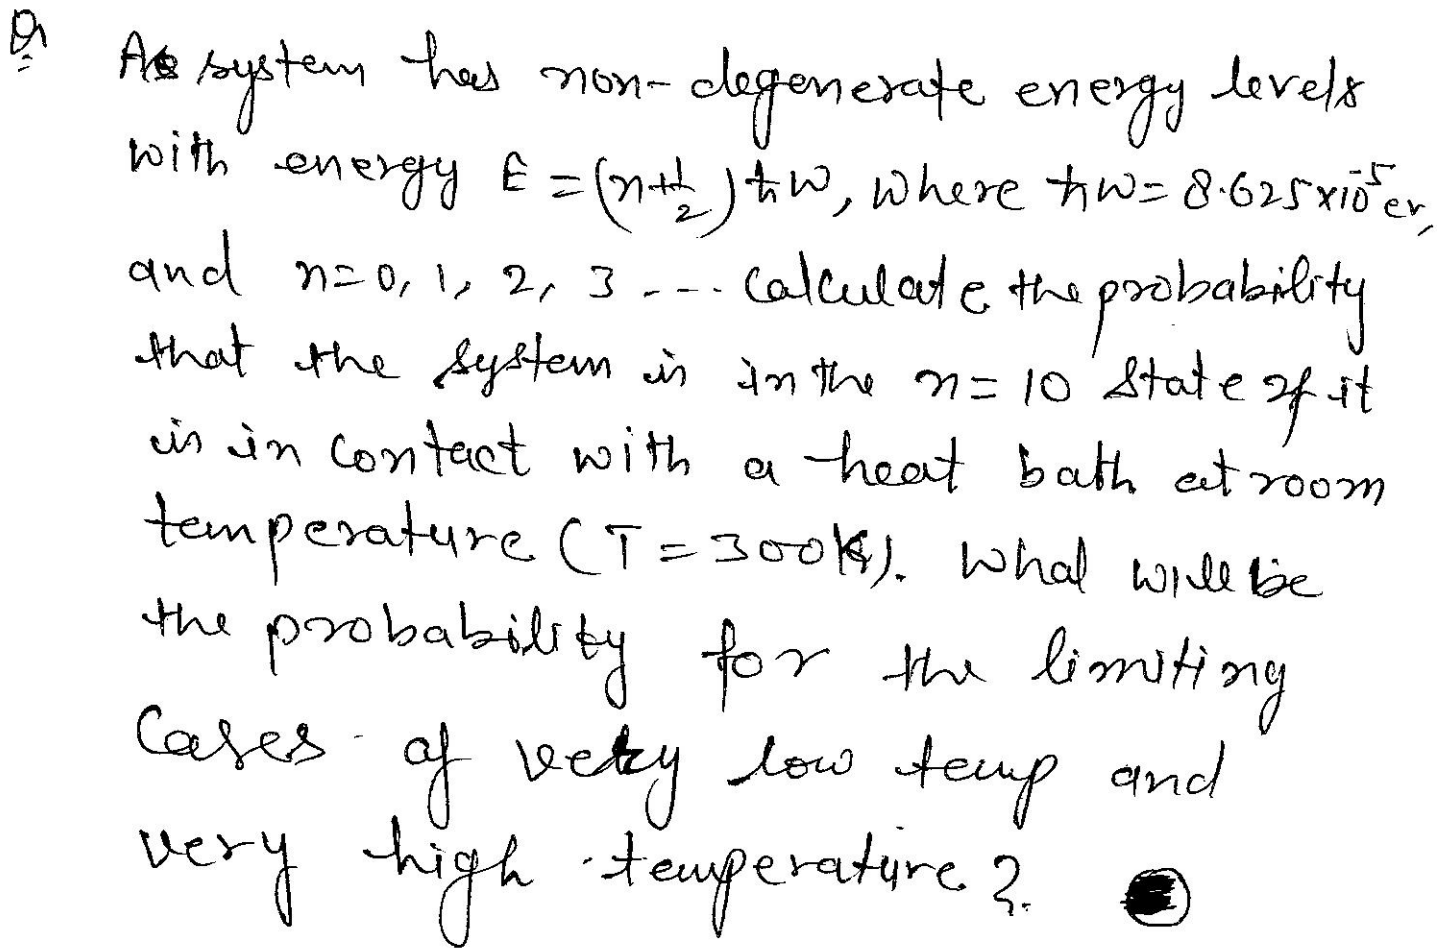 Q
A system has non-degenerate energy levels
with energy E = (n+1/2)ħω, where ħω = 8.625×10⁻⁵ ev,
and n=0, 1, 2, 3 --- Calculate the probability
that the system is in the n=10 state if it
is in contact with a heat bath at room
temperature (T=300K). What will be
the probability for the limiting
Cases of very low temp and
very high temperature?